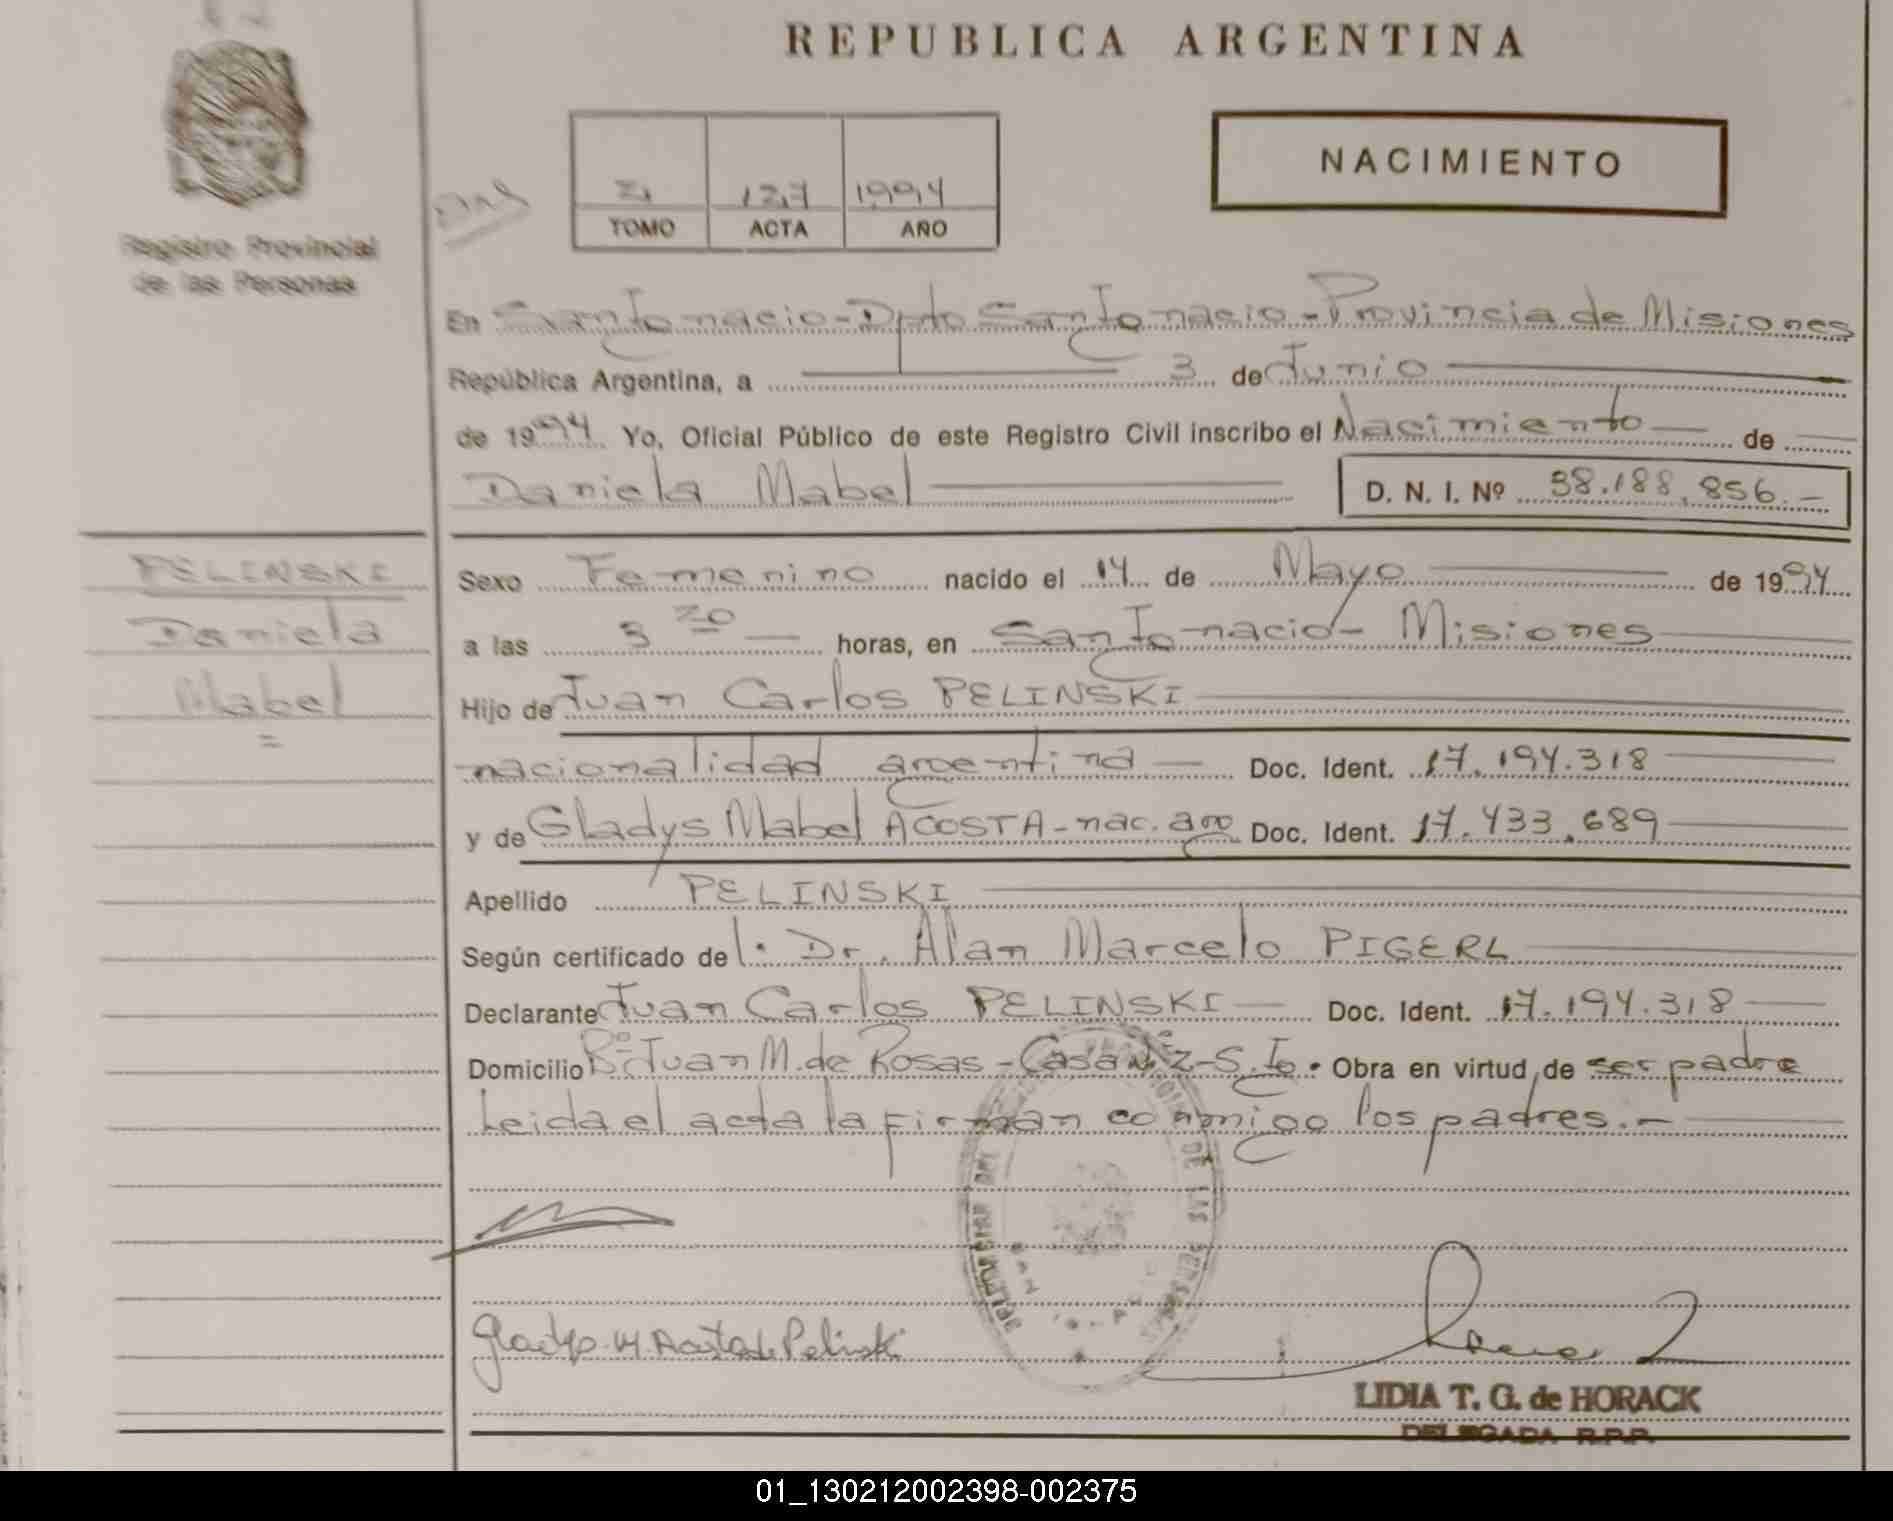 REPUBLICA ARGENTINA
NACIMIENTO
127 1994
TOMO ACTA AÑO
Registro Provincial
de las Personas
En San Ignacio - Dpto San Ignacio - Provincia de Misiones
República Argentina, a 3 de Junio
de 1994 Yo, Oficial Público de este Registro Civil inscribo el Nacimiento de
Daniela Mabel D. N. I. Nº 38.188.856.-
PELINSKI
Daniela
Mabel
Sexo Femenino nacido el 14 de Mayo de 1994
a las 3 20 horas, en San Ignacio - Misiones
Hijo de Juan Carlos PELINSKI
nacionalidad argentina Doc. Ident. 17.194.318
y de Gladys Mabel ACOSTA - nac. arg Doc. Ident. 17.433.689
Apellido PELINSKI
Según certificado de l. Dr. Alan Marcelo PIGERL
Declarante Juan Carlos PELINSKI Doc. Ident. 17.194.318
Domicilio Bº Juan M. de Rosas - Casa - S. Ig. Obra en virtud de ser padre
Leida el acta la firman conmigo los padres.-
DE LAS
Gladys M. Acosta de Pelinski
LIDIA T. G. de HORACK
DELEGADA R.P.P.
01_130212002398-002375